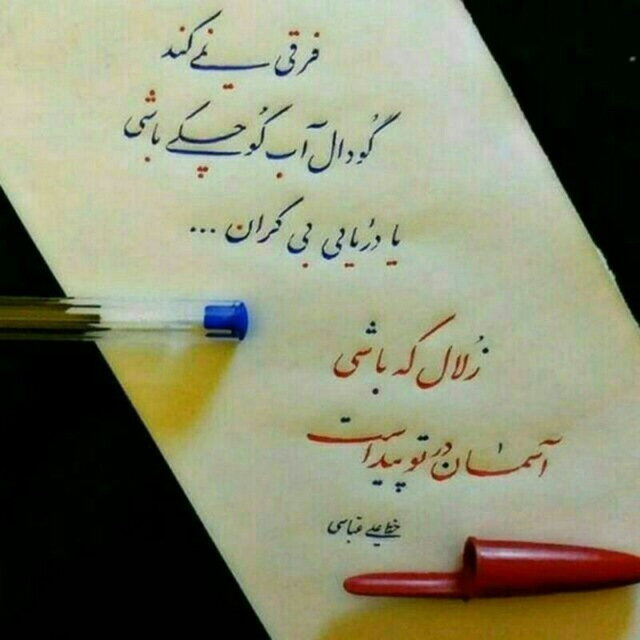 فرقی نمی‌کند
گودال آب کُوچکی باشی
یا دریایی بی کران ...
زُلال که باشی
آسمان در تو پیداست
خط علی عباسی